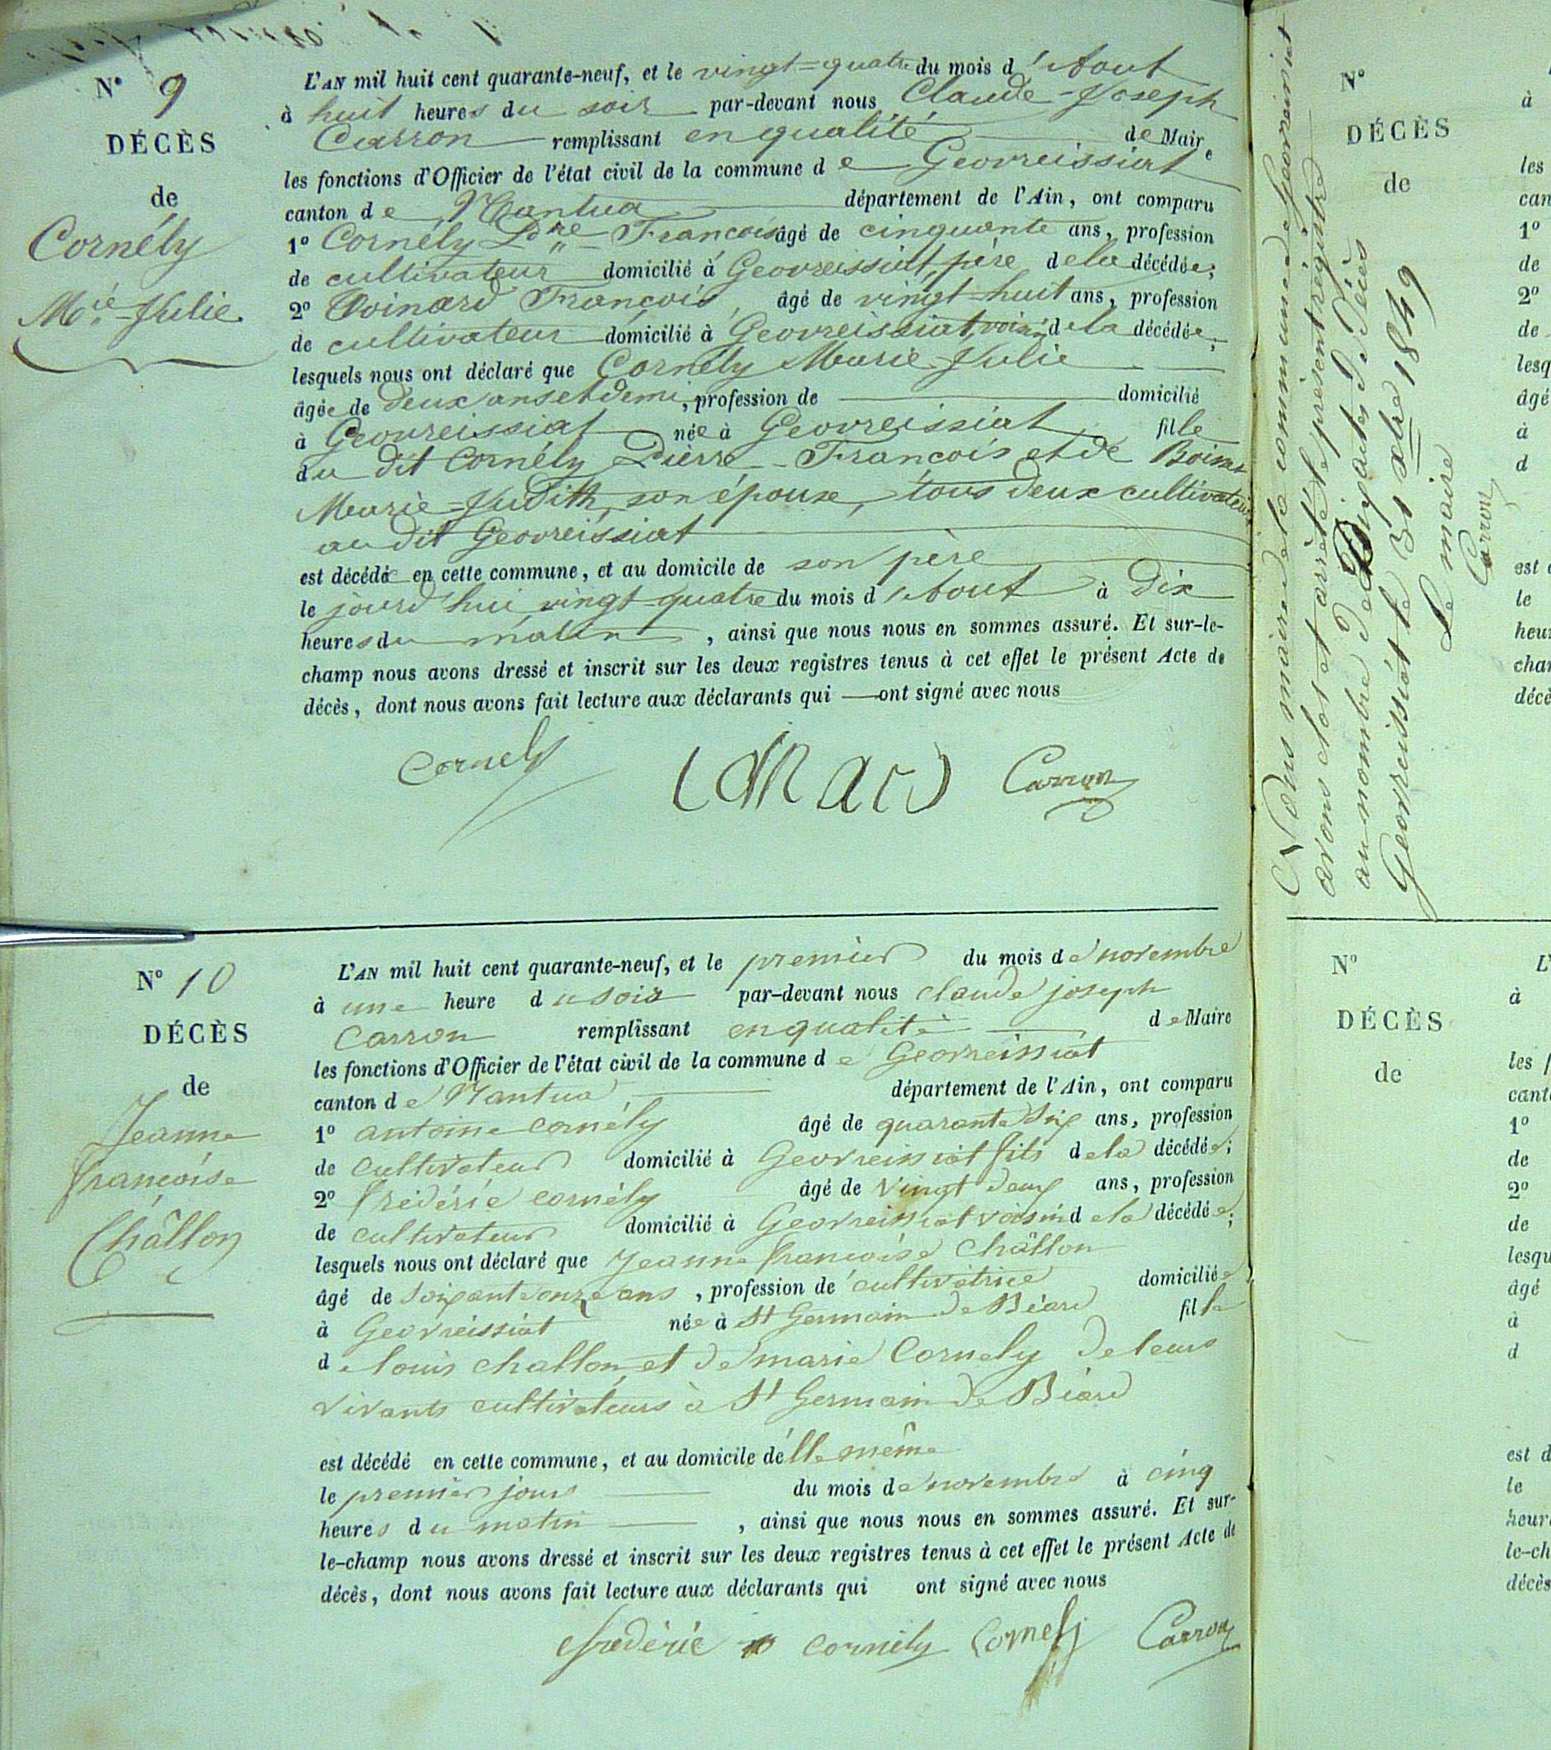 N° 9
DÉCÈS
de
Cornély
M.ie Julie
L'AN mil huit cent quarante-neuf, et le vingt=quatre du mois d'Aout
à huit heures du soir par-devant nous Claude-Joseph
Carron remplissant en qualité de Maire
les fonctions d'Officier de l'état civil de la commune de Geovreissiat
canton de Nantua département de l'Ain, ont comparu
1° Cornély Pierre-François âgé de cinquante ans, profession
de cultivateur domicilié à Geovreissiat, père de la décédée;
2° Poinard François, âgé de vingt=huit ans, profession
de cultivateur domicilié à Geovreissiat, voisin de la décédée;
lesquels nous ont déclaré que Cornély Marie-Julie
âgée de deux ans et demi, profession de domicilié
à Geovreissiat née à Geovreissiat fille
du dit Cornély Pierre-François et de
Marie=Judith, son épouse, tous deux cultivateurs
au dit Geovreissiat
est décédée en cette commune, et au domicile de son père
le jourd'hui vingt-quatre du mois d'Aout à dix
heures du matin, ainsi que nous nous en sommes assuré. Et sur-le-
champ nous avons dressé et inscrit sur les deux registres tenus à cet effet le présent Acte de
décès, dont nous avons fait lecture aux déclarants qui ont signé avec nous
Cornely Carron
N° 10
DÉCÈS
de
Jeanne
françoise
Châllon
L'AN mil huit cent quarante-neuf, et le premier du mois de novembre
à une heure du soir par-devant nous claude joseph
Carron remplissant en qualité de Maire
les fonctions d'Officier de l'état civil de la commune de Geovreissiat
canton de Nantua département de l'Ain, ont comparu
1° antoine cornély âgé de quarante six ans, profession
de cultivateur domicilié à Geovreissiat fils de la décédée;
2° frédéric cornély âgé de vingt deux ans, profession
de cultivateur domicilié à Geovreissiat voisin de la décédée;
lesquels nous ont déclaré que Jeanne françoise Châllon
âgé de soixante onze ans, profession de cultivatrice domiciliée
à Geovreissiat née à St Germain de Béard fille
de louis challon et de marie Cornely de leurs
vivants cultivateurs à St Germain de Béard
est décédé en cette commune, et au domicile d'elle même
le premier jour du mois de novembre à cinq
heures du matin, ainsi que nous nous en sommes assuré. Et sur-
le-champ nous avons dressé et inscrit sur les deux registres tenus à cet effet le présent Acte de
décès, dont nous avons fait lecture aux déclarants qui ont signé avec nous
frédéric cornély Cornely Carron
Nous maire de la commune de Geovreissiat
avons clos et arrêté le présent régistre
au nombre de Dix actes de Décès
Geovreissiat le 31 xbre 1849
Le maire
Carron
N°
DÉCÈS
de
à
les
can
1°
de
2°
de
lesq
âgé
à
d
est
le
heu
cha
décè
N°
DÉCÈS
de
L'
à
les f
cant
1°
de
2°
de
lesqu
âgé
à
d
est d
le
heur
le-ch
décès